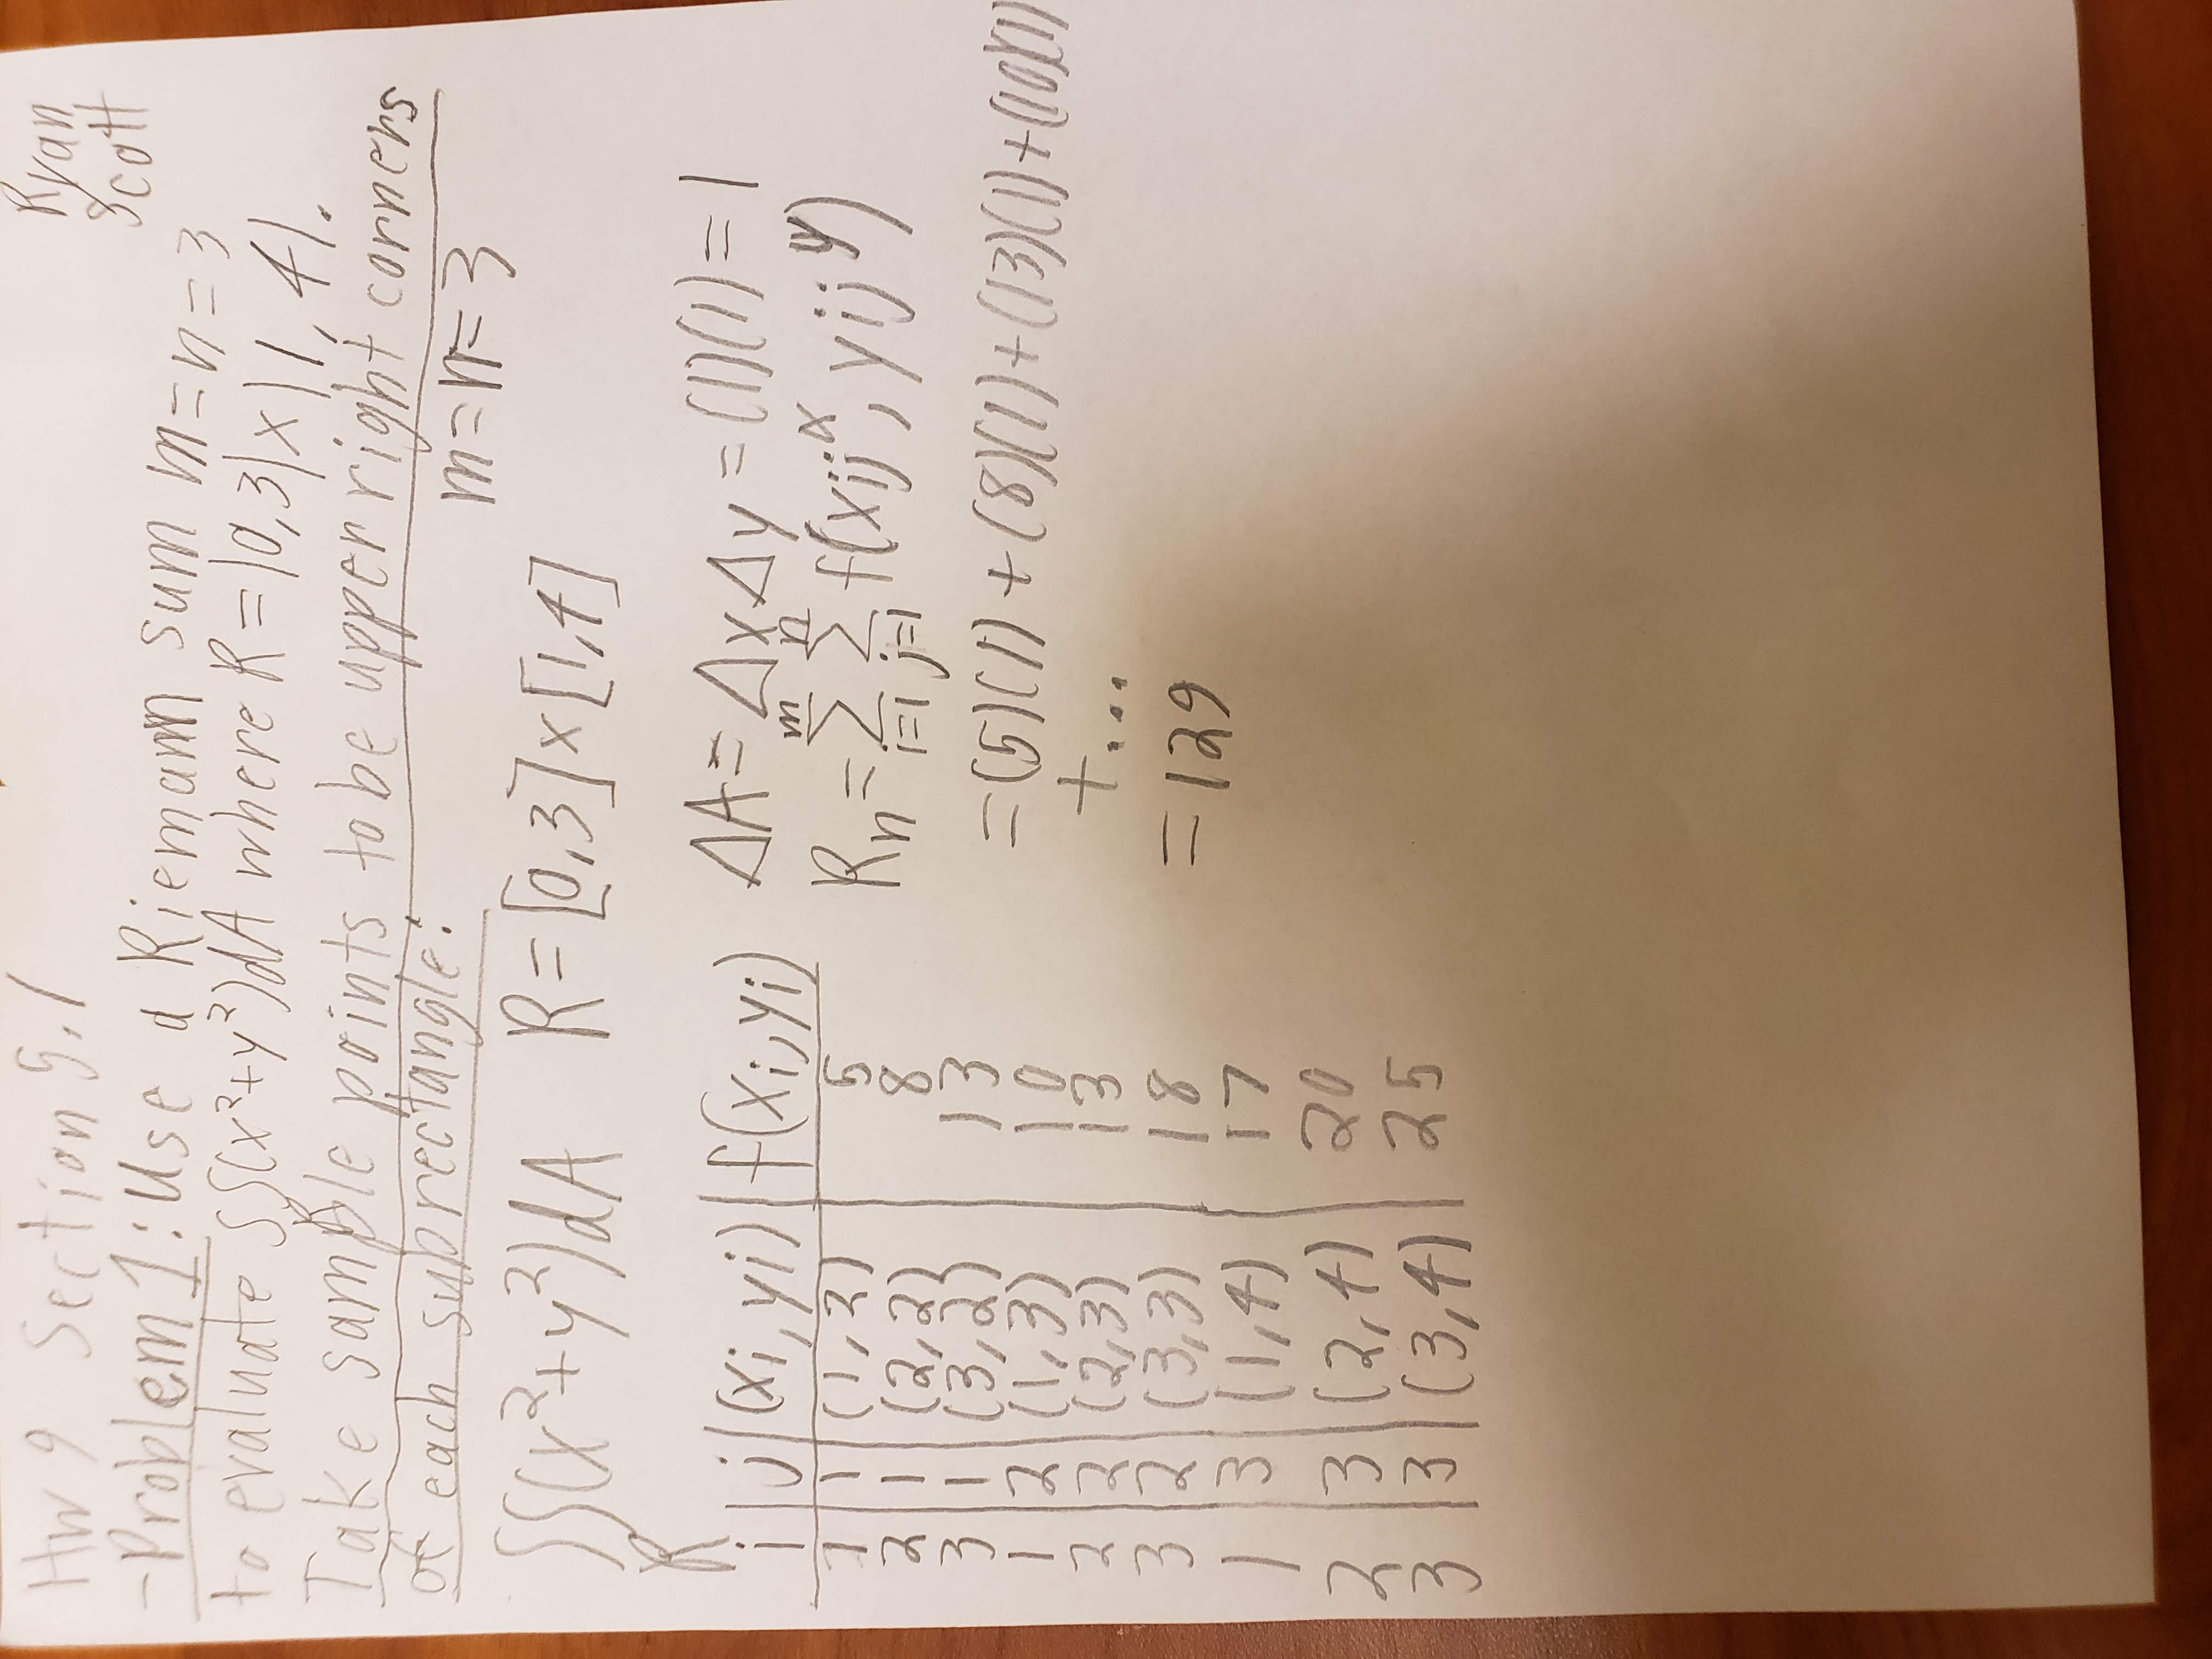 Hw 9 Section 5.1
Ryan
Scott
-Problem 1: Use a Riemann sum m=n=3
to evaluate ∫∫(x²+y²)dA where R=|0,3|x|1,4|.
R
Take sample points to be upper right corners
of each subrectangle:
m=n=3
∫∫(x²+y²)dA R=[0,3]x[1,4]
R
i | j | (xi,yi) | f(xi,yi)
1 | 1 | (1,2) | 5
2 | 1 | (2,2) | 8
3 | 1 | (3,2) | 13
1 | 2 | (1,3) | 10
2 | 2 | (2,3) | 13
3 | 2 | (3,3) | 18
1 | 3 | (1,4) | 17
2 | 3 | (2,4) | 20
3 | 3 | (3,4) | 25
ΔA=ΔxΔy=(1)(1)=1
m n
Rn=Σ Σ f(xij^x, yij^y)
i=1 j=1
=(5)(1)+(8)(1)+(13)(1)+(10)(1)
+...
=129